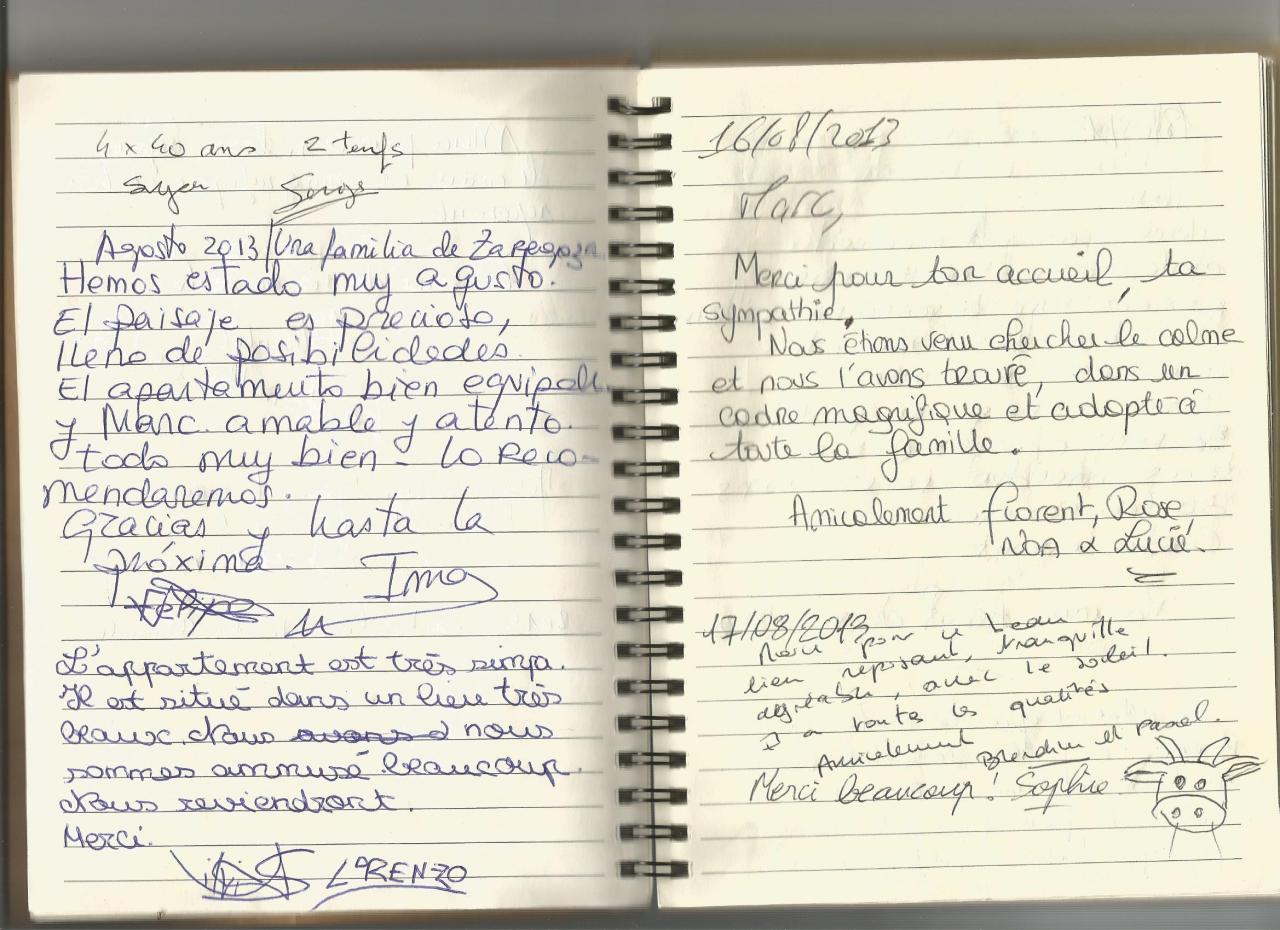 4 x 40 ans 2
Serge
Agosto 2013/Una familia de Zaragoza
Hemos estado muy agusto.
El paisaje es precioso,
lleno de posibilidades.
El apartamento bien equipado
y Marc amable y atento.
todo muy bien - Lo reco-
mendaremos.
Gracias y hasta la
próxima.
Felipe Inma
L'appartement est très simpa.
Il est situé dans un lieu très
beaux. Nous avons nous
sommes ammusé beaucoup.
Nous reviendront.
Merci.
LORENZO
16/08/2013
Marc,
Merci pour ton accueil, ta
sympathie.
Nous étions venu chercher le calme
et nous l'avons trouvé, dans un
cadre magnifique et adapté à
toute la famille.
Amicalement Florent, Rose
NOA & Lucie.
17/08/2013
pour un beau
lieu reposant, tranquille
agréable, avec le soleil.
Il a toutes les qualités
Amicalement Blandine et Pascal.
Merci beaucoup! Sophie